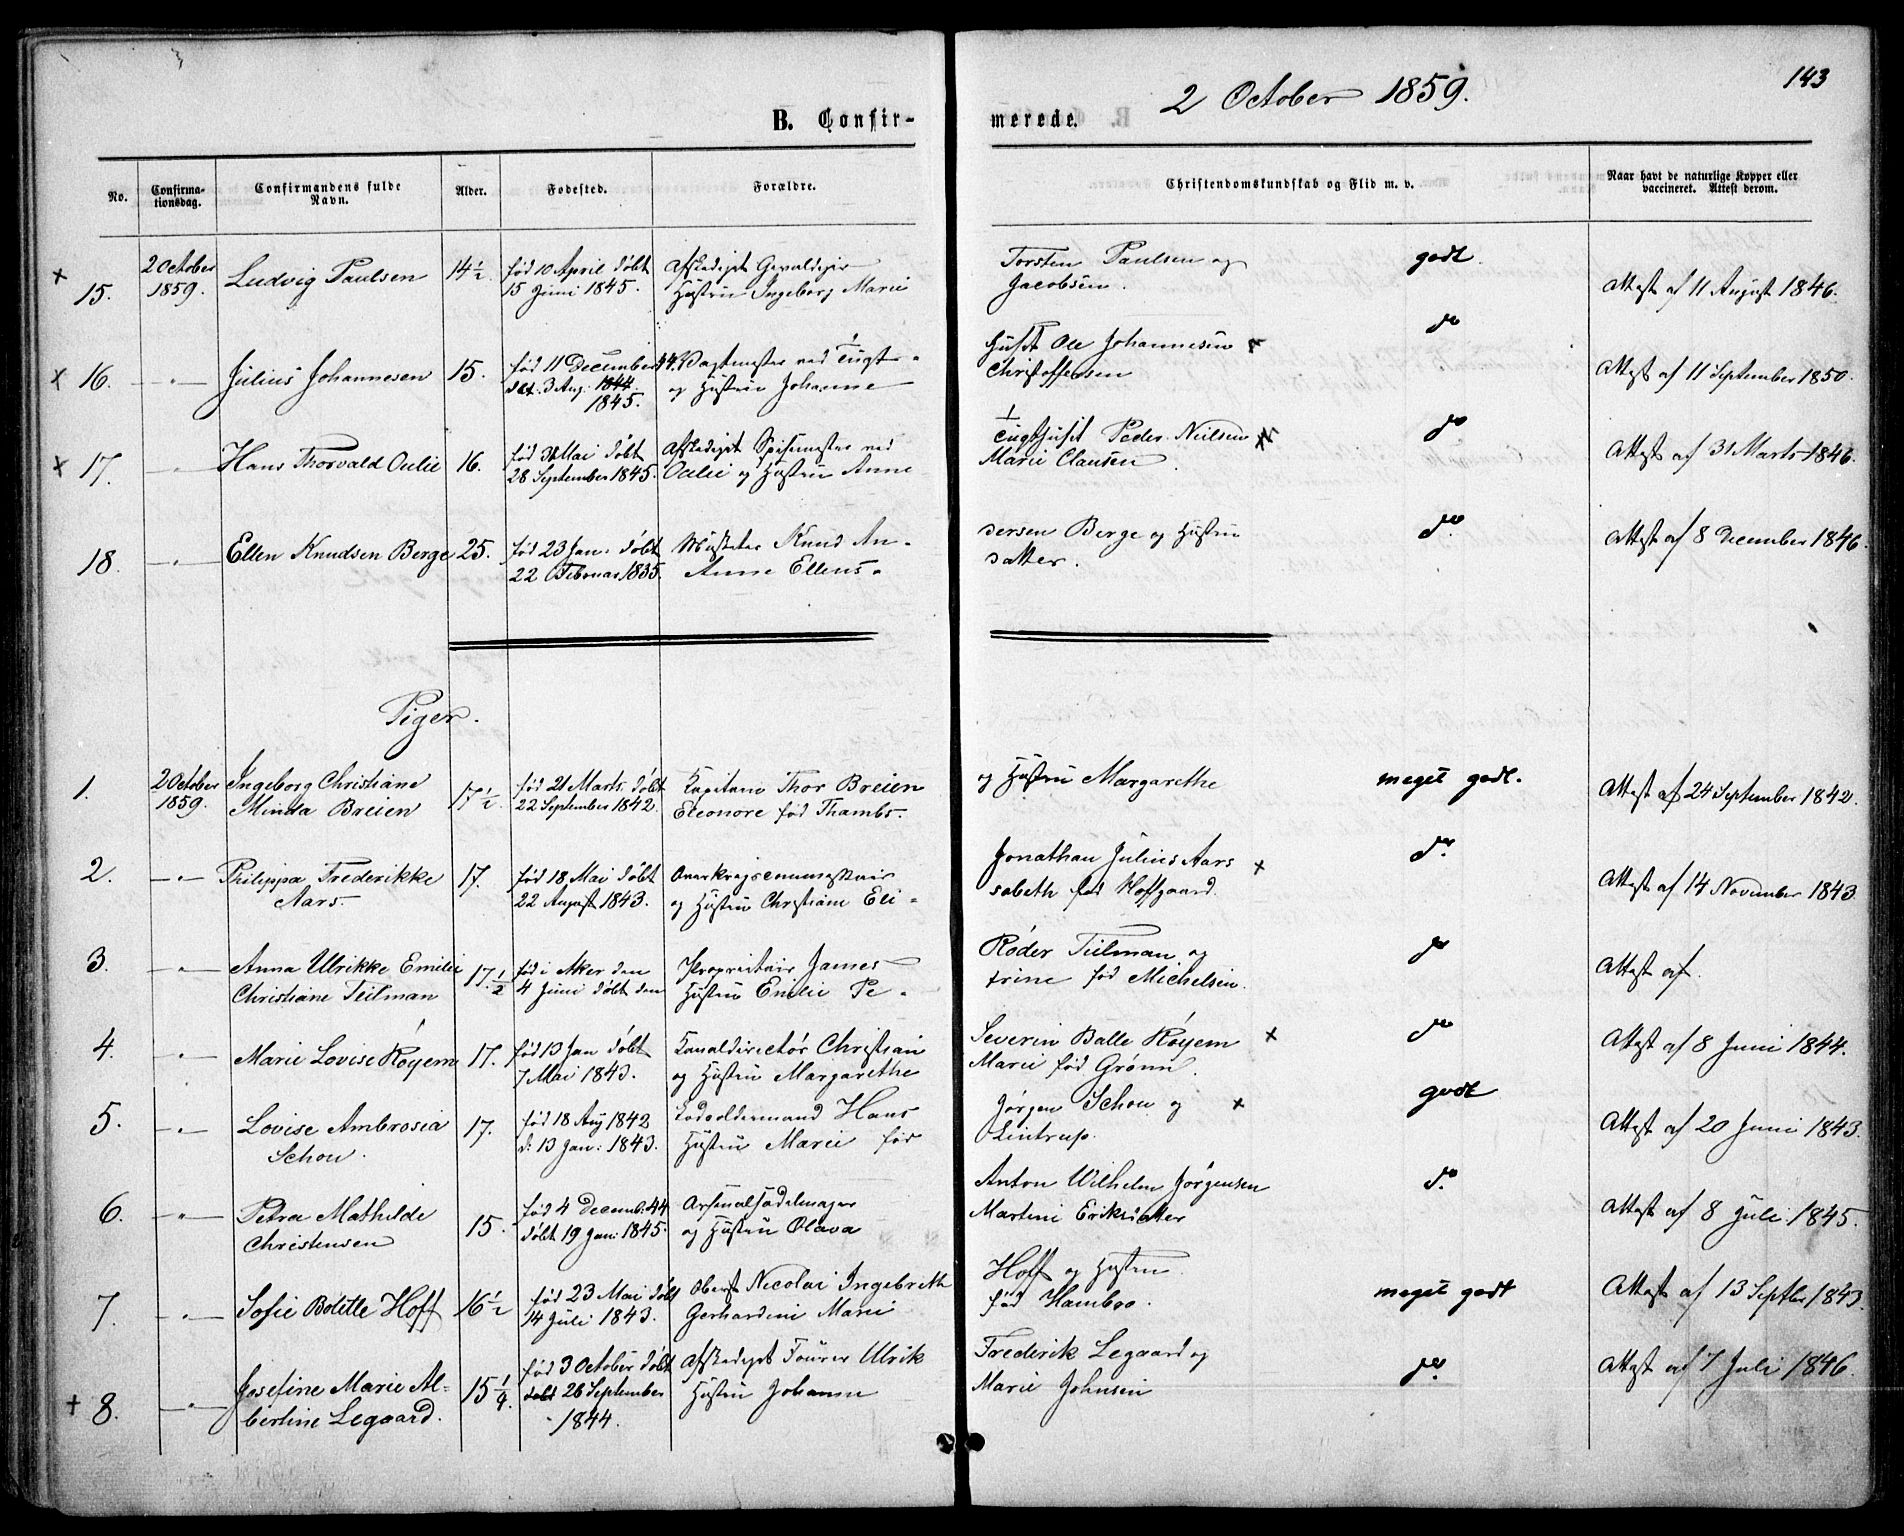 143
2 October 1859.
B. Confir-
merede.
No.
Confirma-
tionsdag.
Confirmandens fulde
Navn.
Alder.
Fødested.
Forældre.
Christendomskundskab og Flid m. v.
Naar havt de naturlige Kopper eller
vaccineret. Attest derom.
x 15. 2 October 1859. Ludvig Paulsen 14 1/2. født 10 April døbt Afskediget Gevaldiger Torsten Paulsen og godt. Attest af 11 August 1846.
15 Juni 1845. Hustru Ingeborg Marie Jacobsen.
x 16. -"- Julius Johannesen 15. født 11 December 44. Vagtmester ved Tugt- huset Ole Johannesen x do Attest af 11 September 1850.
døt. 3 Aug. 1844. og Hustru Johanne Christoffersen
1845.
x 17. -"- Hans Thorvald Oulie 16. født Mai døbt Afskediget Spisemester ved Tugthuset Peder Nielsen x do Attest af 31 Marts 1846.
28 September 1845. Oulie og Hustru Anne Marie Clausen.
18. -"- Ellen Knudsen Berge 25. født 23 Jan: døbt Musketer Knud An- dersen Berge og Hustru do. Attest af 8 December 1846.
22 Februar 1835. Anne Ellens- datter.
Piger.
1. 2 October 1859. Ingeborg Christiane 17 1/2. født 21 Marts døbt Kapitain Thor Breien og Hustru Margarethe meget godt. Attest af 24 September 1842.
Minda Breien 22 September 1842. Eleonore fød Thambs.
2. -"- Philippa Frederikke 17. født 18 Mai døbt Overkrigscommissair Jonathan Julius Aars x do. Attest af 14 November 1843.
Aars. 22 August 1843. og Hustru Christiane Eli- sabeth fød Hoffgaard.
3. -"- Anna Ulrikke Emilie 17. 1/2 fød i Aker den Proprietair James Røder Teilman og do Attest af.
Christiane Teilman 4 Juni døbt den Hustru Emilie Pe- trine fød Michelsen.
4. -"- Marie Lovise Røyem 17. født 13 Jan døbt Kanaldirectør Christian Severin Balle Røyem x do Attest af 8 Juni 1844.
7 Mai 1843. og Hustru Margarethe Marie fød Grønn.
5. -"- Lovise Ambrosia 17. født 18 Aug 1842 Lodsoldermand Hans Jørgen Schou og x godt Attest af 20 Juni 1843.
Schou. d: 13 Jan: 1843. Hustru Marie fød Lintrup.
6. -"- Petra Mathilde 15. født 4 Decemb: 44 Arsenalsadelmager Anton Wilhelm Jørgensen do. Attest af 8 Juli 1845.
Christensen døbt 19 Jan: 1845. og Hustru Olava Martine Eriksdatter
7. -"- Sofie Bolette Hoff 16 1/2 født 23 Mai døbt Oberst Nicolai Ingebreth Hoff og Hustru meget godt Attest af 13 Septbr 1843.
14 Juli 1843. Gerhardine Marie fød Hambro.
+ 8. -"- Josefine Marie Al- 15 1/4. født 3 October døbt Afskediget Fourer Ulrik Frederik Legaard og do. Attest af 7 Juli 1846.
bertine Legaard. døbt 26 September Hustru Johanne Marie Johnsen
1844.